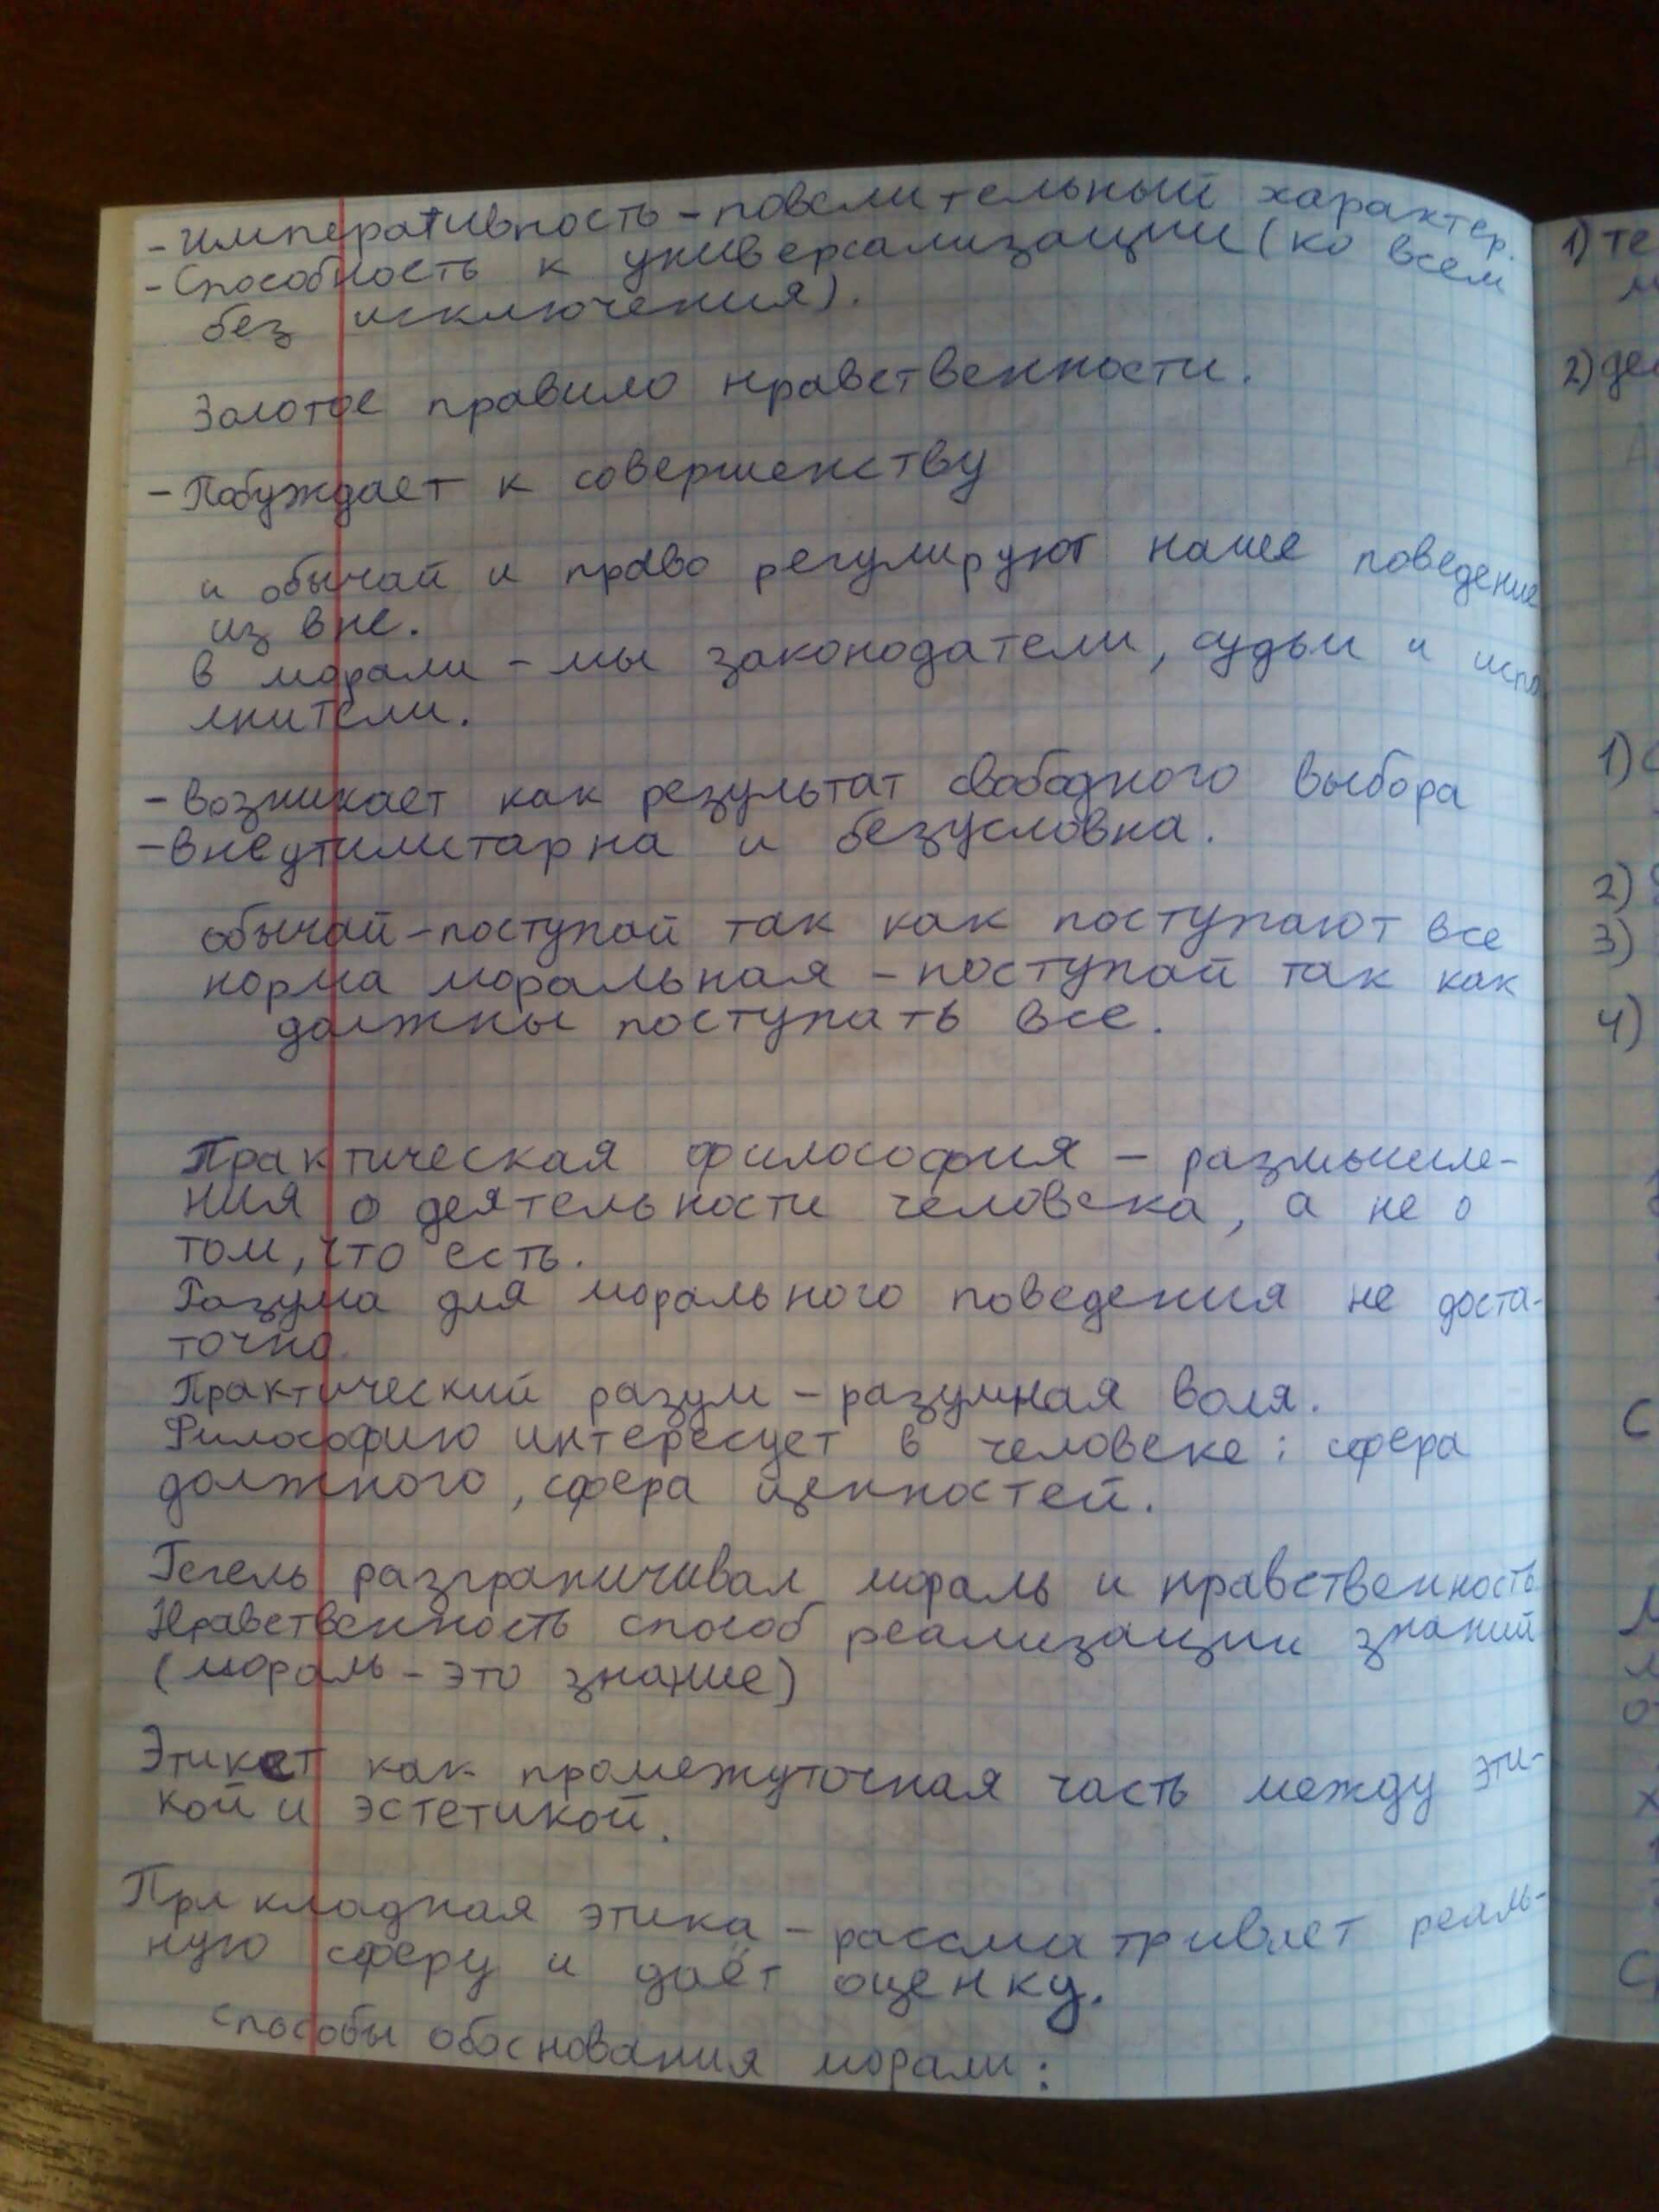 - Императивность - повелительный характер.
- Способность к универсализации (ко всем
без исключения).
Золотое правило нравственности.
- Побуждает к совершенству
и обычай и право регулируют наше поведение
из вне.
в морали - мы законодатели, судьи и испо
лнители.
- возникает как результат свободного выбора
- внеутилитарна и безусловна.
обычай - поступай так как поступают все
норма моральная - поступай так как
должны поступать все.
Практическая философия - размышле-
ния о деятельности человека, а не о
том, что есть.
Разума для морального поведения не доста-
точно.
Практический разум - разумная воля.
Философию интересует в человеке: сфера
должного, сфера ценностей.
Гегель разграничивал мораль и нравственность
Нравственность способ реализации знаний
(мораль - это знание)
Этикет как промежуточная часть между эти-
кой и эстетикой.
Прикладная этика - рассматривает реаль-
ную сферу и даёт оценку.
способы обоснования морали:
1) те
2) де
1) с
2)
3)
4)